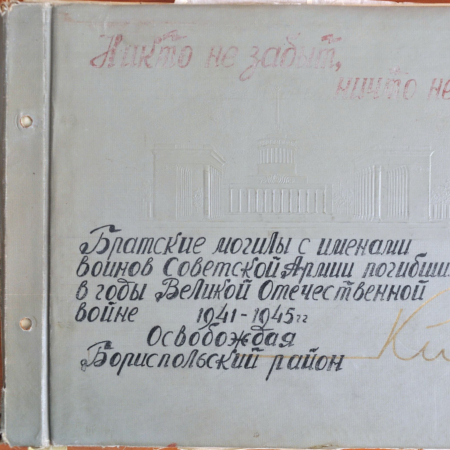 Никто не забыт,
никто не
Братские могилы с именами
воинов Советской Армии погибши
в годы Великой Отечественной
войне 1941-1945гг
Освобождая
Бориспольский район